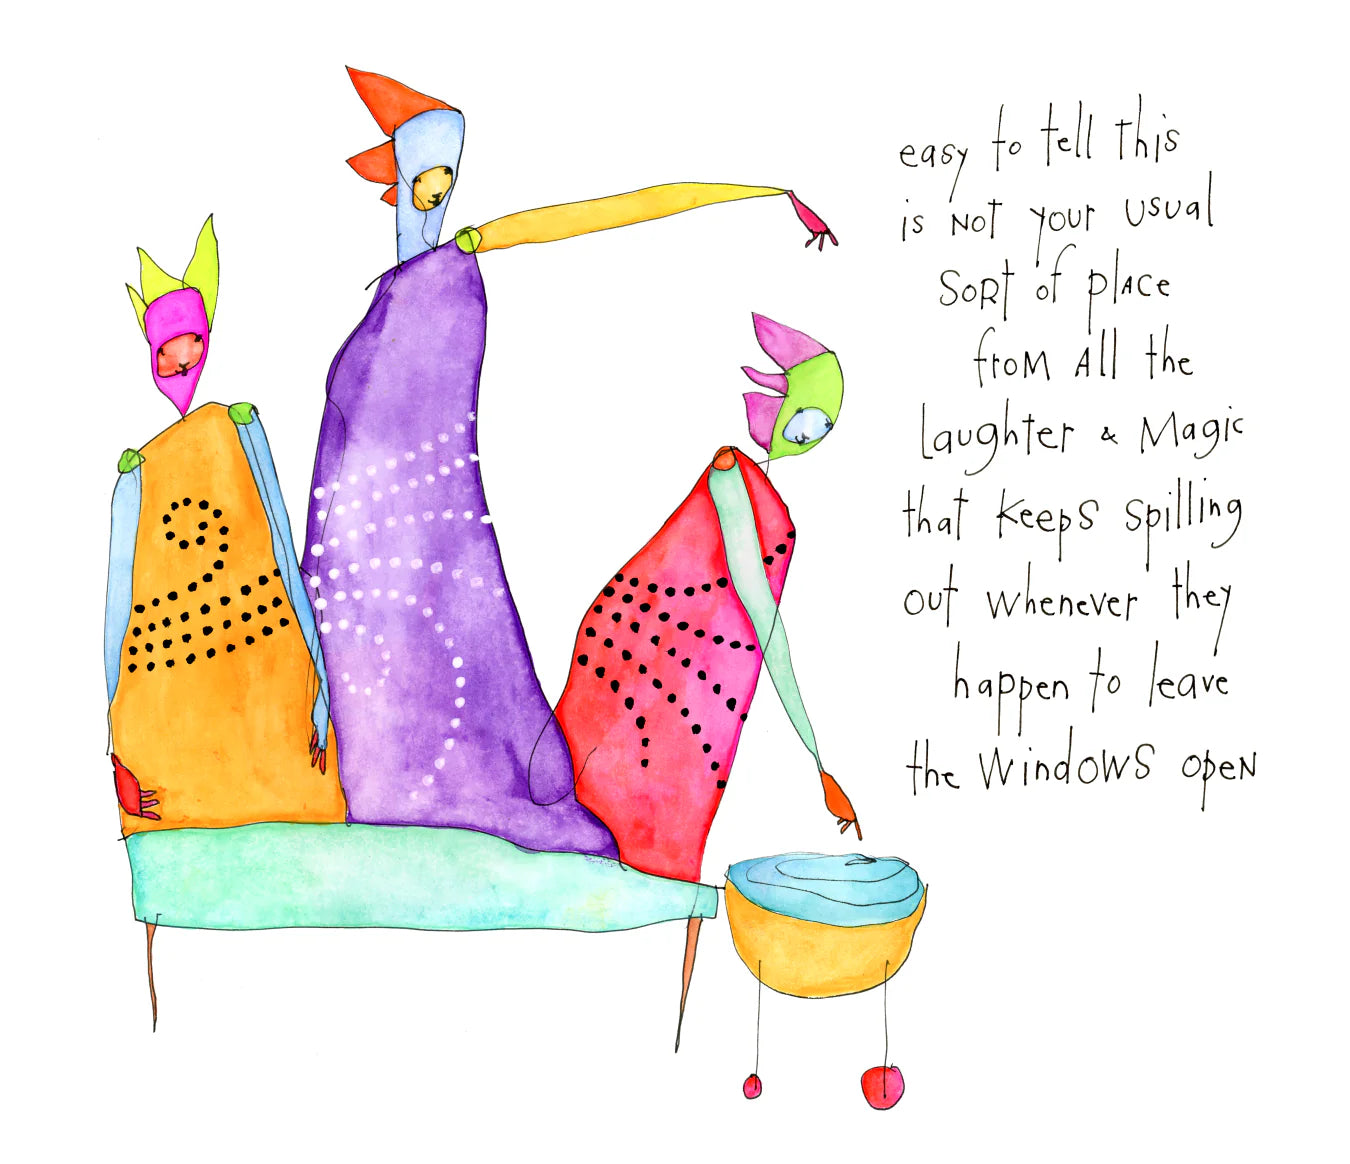 easy to tell this
is not your usual
sort of place
from all the
laughter & magic
that keeps spilling
out whenever they
happen to leave
the windows open